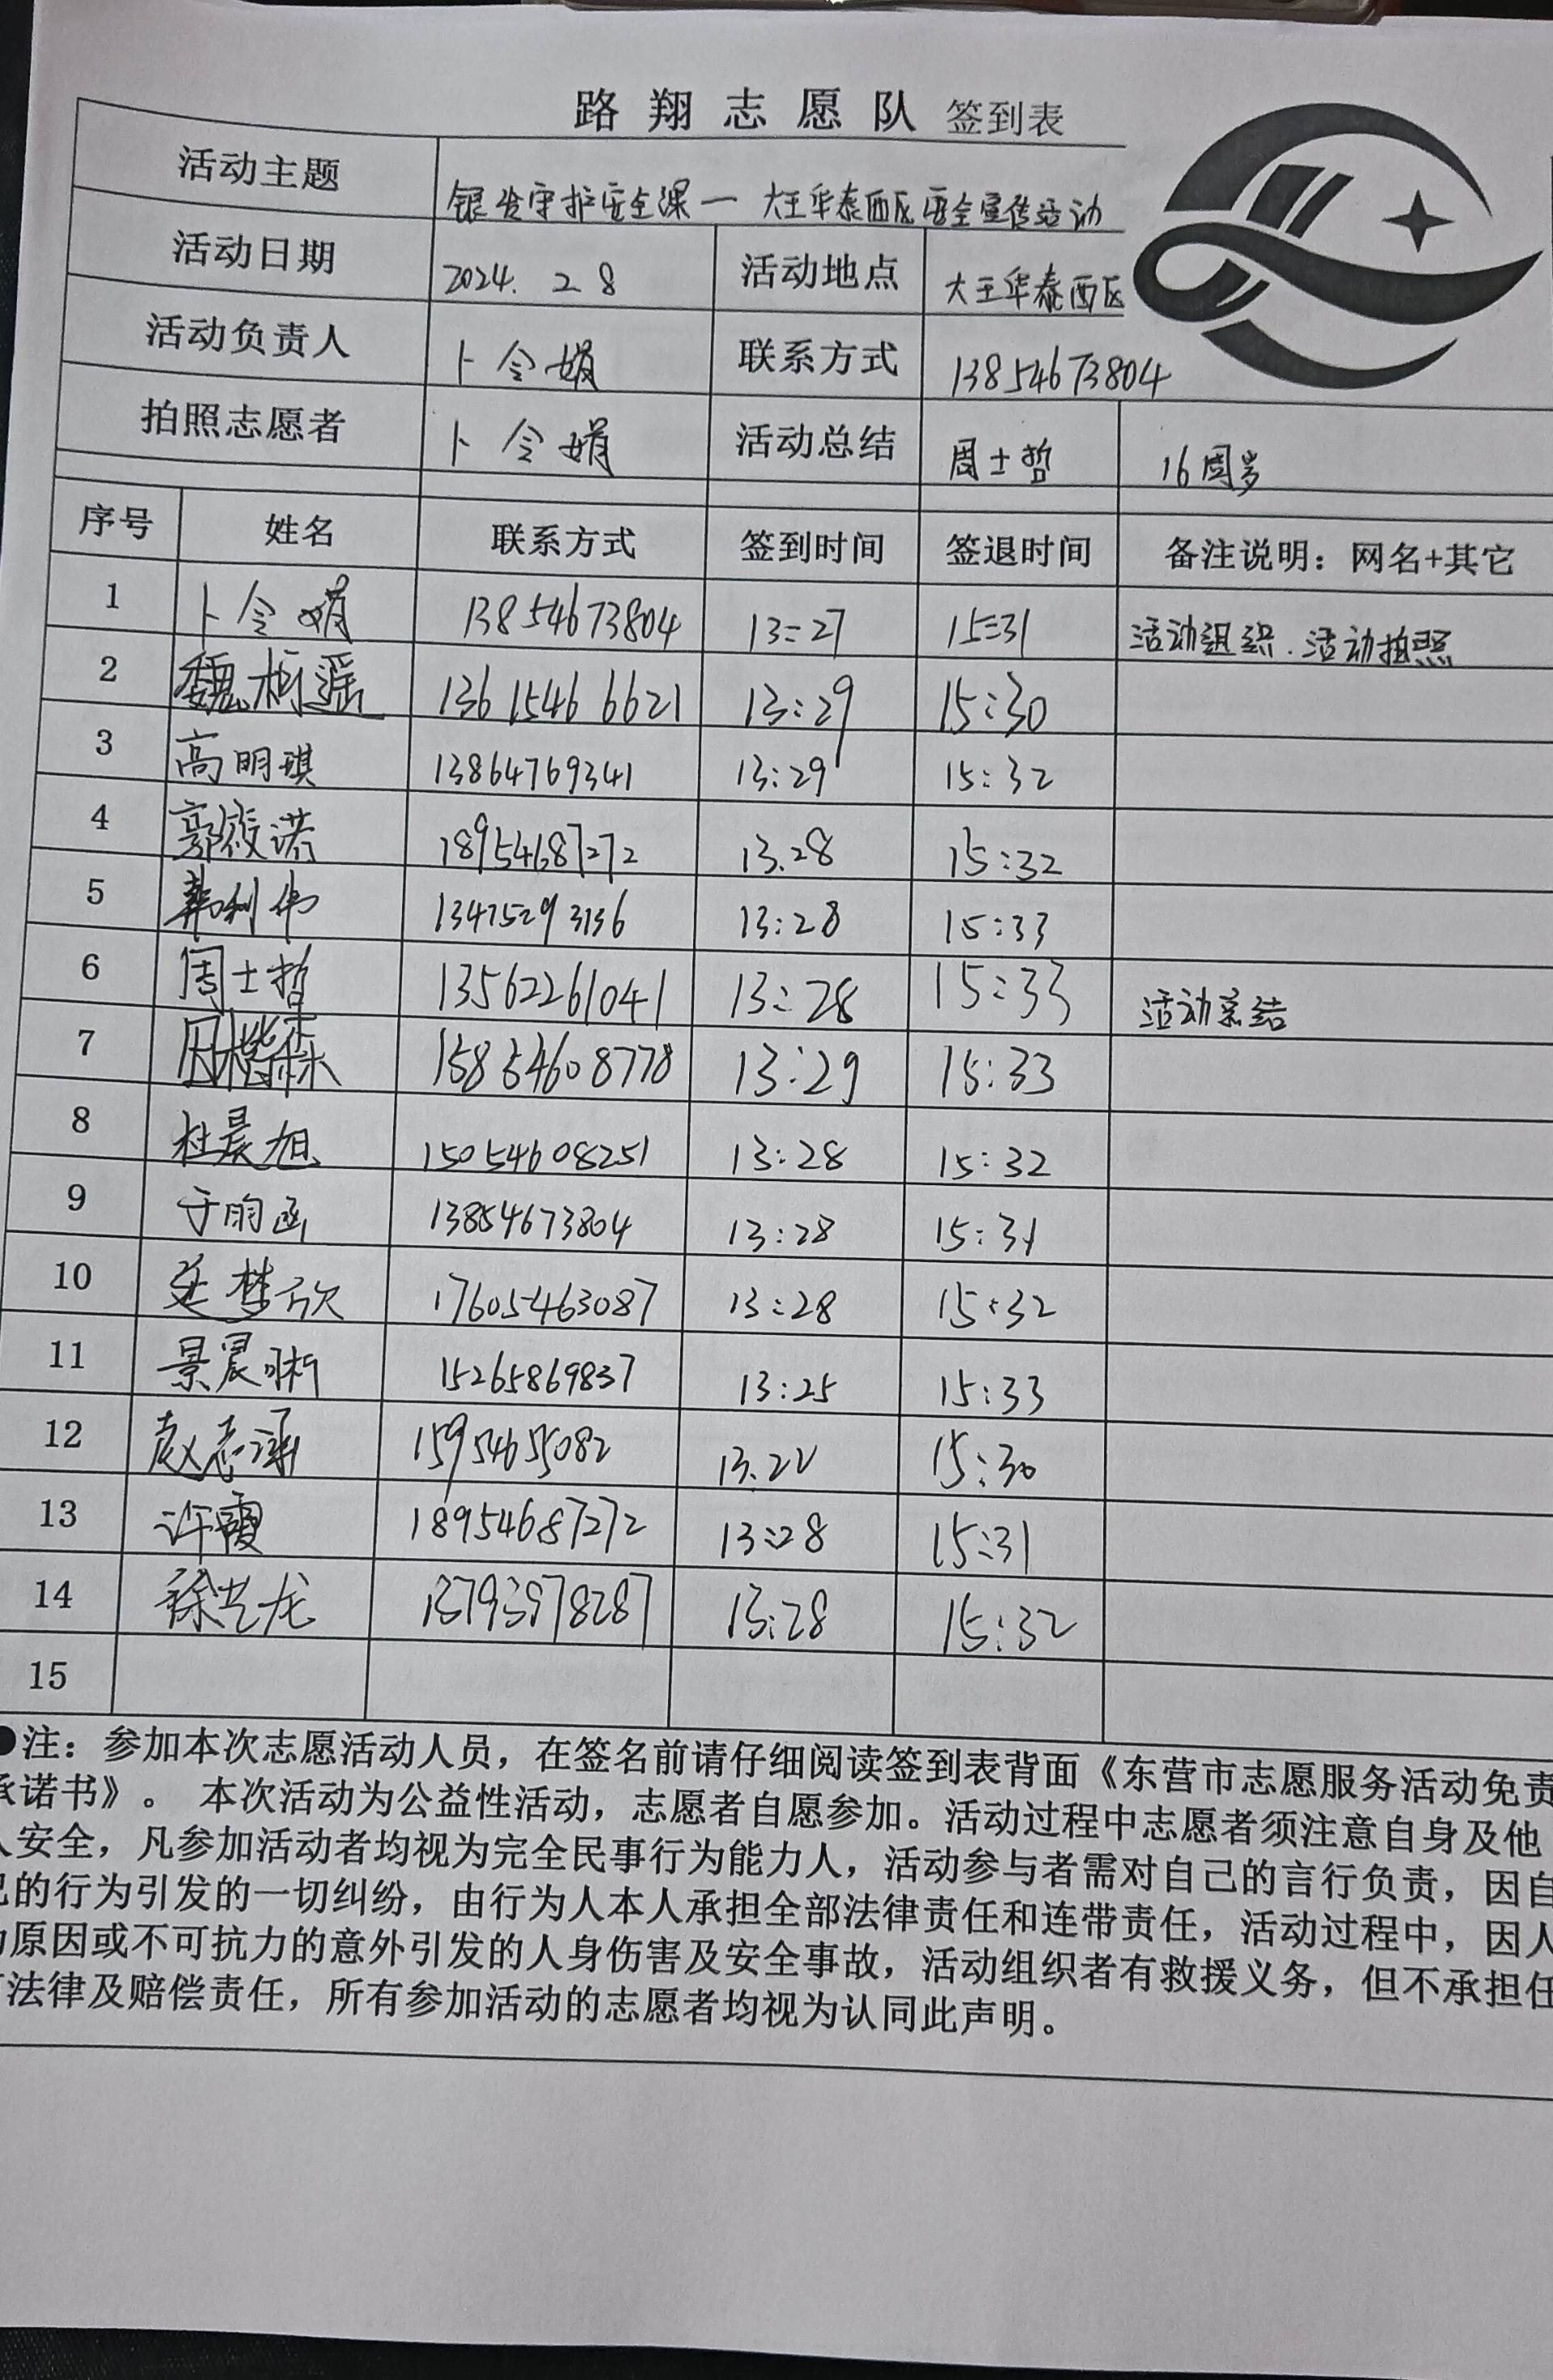 路翔志愿队 签到表
活动主题 银发守护安全课一 大王华泰西区安全宣传活动
活动日期 2024. 2 8 活动地点 大王华泰西区
活动负责人 卜令娟 联系方式 13854673804
拍照志愿者 卜令娟 活动总结 周士哲 16周岁
序号 姓名 联系方式 签到时间 签退时间 备注说明：网名+其它
1 卜令娟 13854673804 13:27 15:31 活动组织.活动拍照
2 魏梓遥 13615466621 13:29 15:30
3 高明琪 13864769341 13:29 15:32
4 郭筱诺 18954687272 13.28 15:32
5 韩利伟 13475293136 13:28 15:33
6 周士哲 13562261041 13:28 15:33 活动总结
7 15854608778 13:29 15:33
8 杜晨旭 15054608251 13:28 15:32
9 于昀函 13854673804 13:28 15:31
10 延梦欣 17605463087 13:28 15:32
11 景晨晰 15265869837 13:25 15:33
12 赵志涵 15954655082 13.22 15:30
13 许霞 18954687272 13:28 15:31
14 徐芝龙 13793978287 13:28 15:32
15
●注：参加本次志愿活动人员，在签名前请仔细阅读签到表背面《东营市志愿服务活动免责
承诺书》。 本次活动为公益性活动，志愿者自愿参加。活动过程中志愿者须注意自身及他
人安全，凡参加活动者均视为完全民事行为能力人，活动参与者需对自己的言行负责，因自
己的行为引发的一切纠纷，由行为人本人承担全部法律责任和连带责任，活动过程中，因人
为原因或不可抗力的意外引发的人身伤害及安全事故，活动组织者有救援义务，但不承担任
何法律及赔偿责任，所有参加活动的志愿者均视为认同此声明。